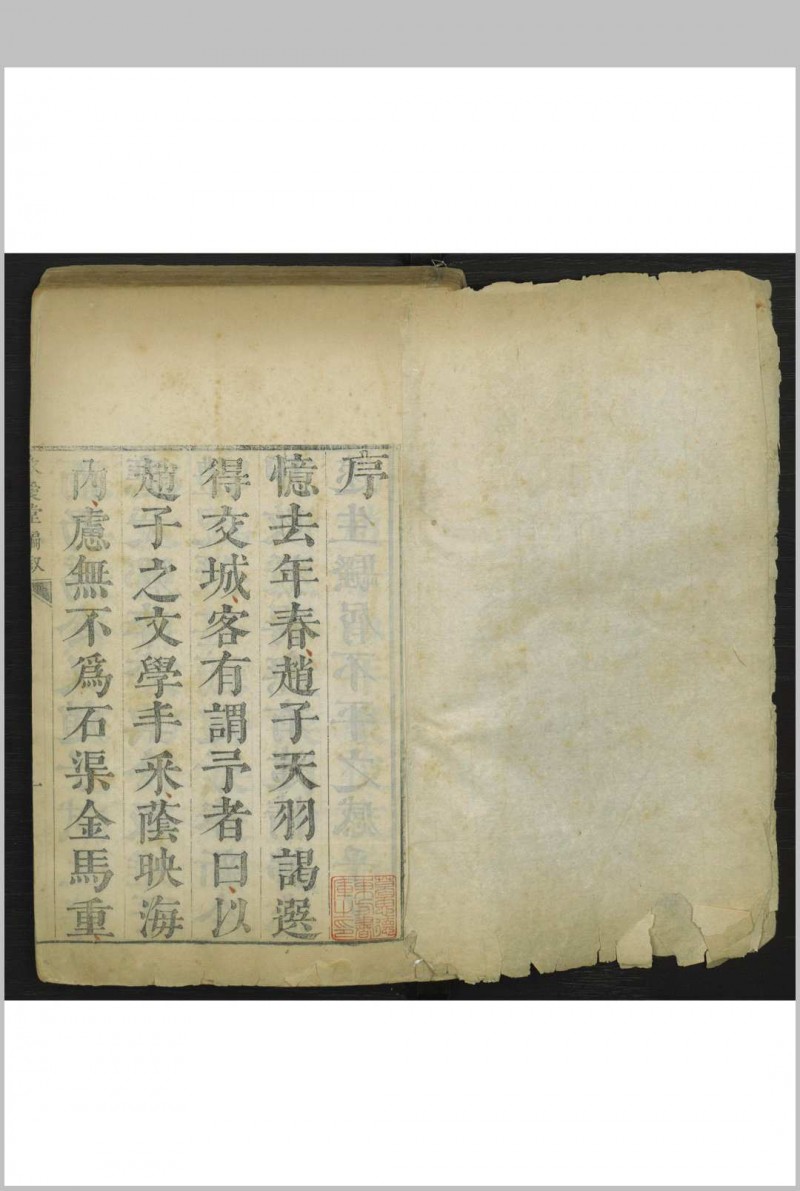 序
憶去年春趙子天羽謁選
得交城客有謂予者曰以
趙子之文學丰采蔭映海
內慮無不爲石渠金馬重